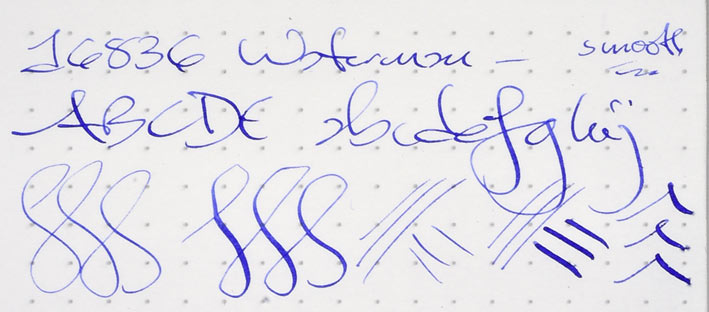 16836 Waterman – smooth
ABCDE abcdefghij